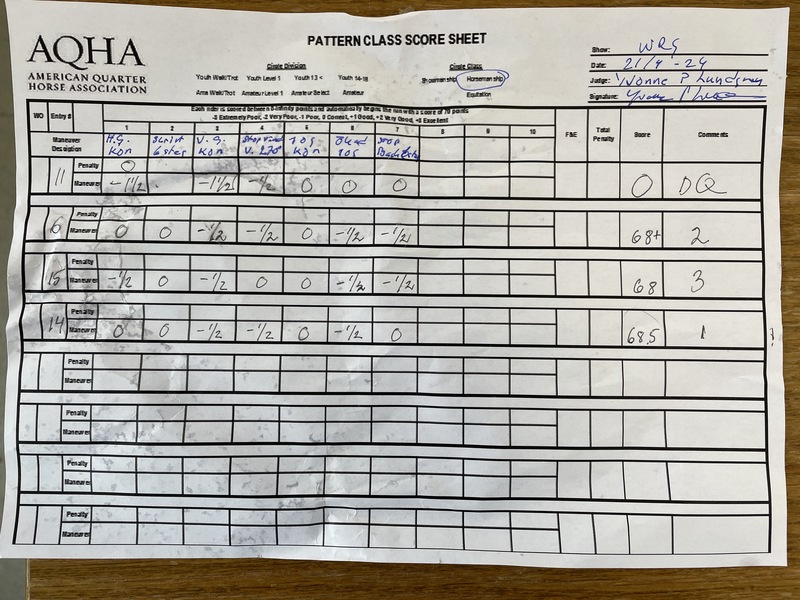 PATTERN CLASS SCORE SHEET
AQHA
AMERICAN QUARTER
HORSE ASSOCIATION
Circle Division
Youth Walk/Trot Youth Level 1 Youth 13 < Youth 14-18
Ama Walk/Trot Amateur Level 1 Amateur Select Amateur
Circle Class
Showmanship Horsemanship
Equitation
Show: WRG
Date: 21/4-24
Judge: Yvonne P
Signature:
Each rider is scored between 0-infinity points and automatically begins the run with a score of 70 points
-3 Extremely Poor, -2 Very Poor, -1 Poor, 0 Correct, +1 Good, +2 Very Good, +3 Excellent
WO Entry # 1 2 3 4 5 6 7 8 9 10 F&E Total Penalty Score Comments
Maneuver Description H.G. Kon V.G. Kon Stop V. 270° Kon Stop
11 Penalty 0
Maneuver -1 1/2 -1 1/2 -1/2 0 0 0 0 DQ
6 Penalty
Maneuver 0 0 -1/2 -1/2 0 -1/2 -1/2 68+ 2
15 Penalty
Maneuver -1/2 0 -1/2 0 0 -1/2 -1/2 68 3
14 Penalty
Maneuver 0 0 -1/2 -1/2 0 -1/2 0 68.5 1
Penalty
Maneuver
Penalty
Maneuver
Penalty
Maneuver
Penalty
Maneuver